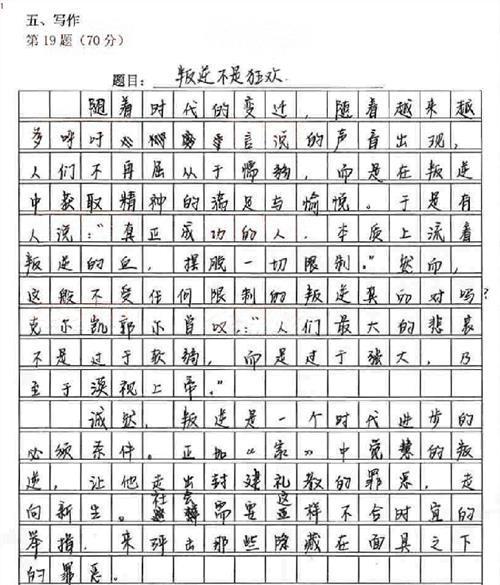 1
五、写作
第19题（70分）
题目：叛逆不是狂欢
随着时代的变迁，随着越来越
多呼吁言说的声音出现，
人们不再屈从于懦弱，而是在叛逆
中获取精神的满足与愉悦。于是有
人说：“真正成功的人，本质上流着
叛逆的血，摆脱一切限制。”然而，
这般不受任何限制的叛逆真的对吗？
克尔凯郭尔曾叹：“人们最大的悲哀
不是过于软弱，而是过于强大，乃
至于漠视上帝。”
诚然，叛逆是一个时代进步的
必须条件。正如《家》中觉慧的叛
逆，让他走出封建礼教的罪恶，走
向新生。社会需要这样不合时宜的
举措，来抨击那些隐藏在面具之下
的罪恶。